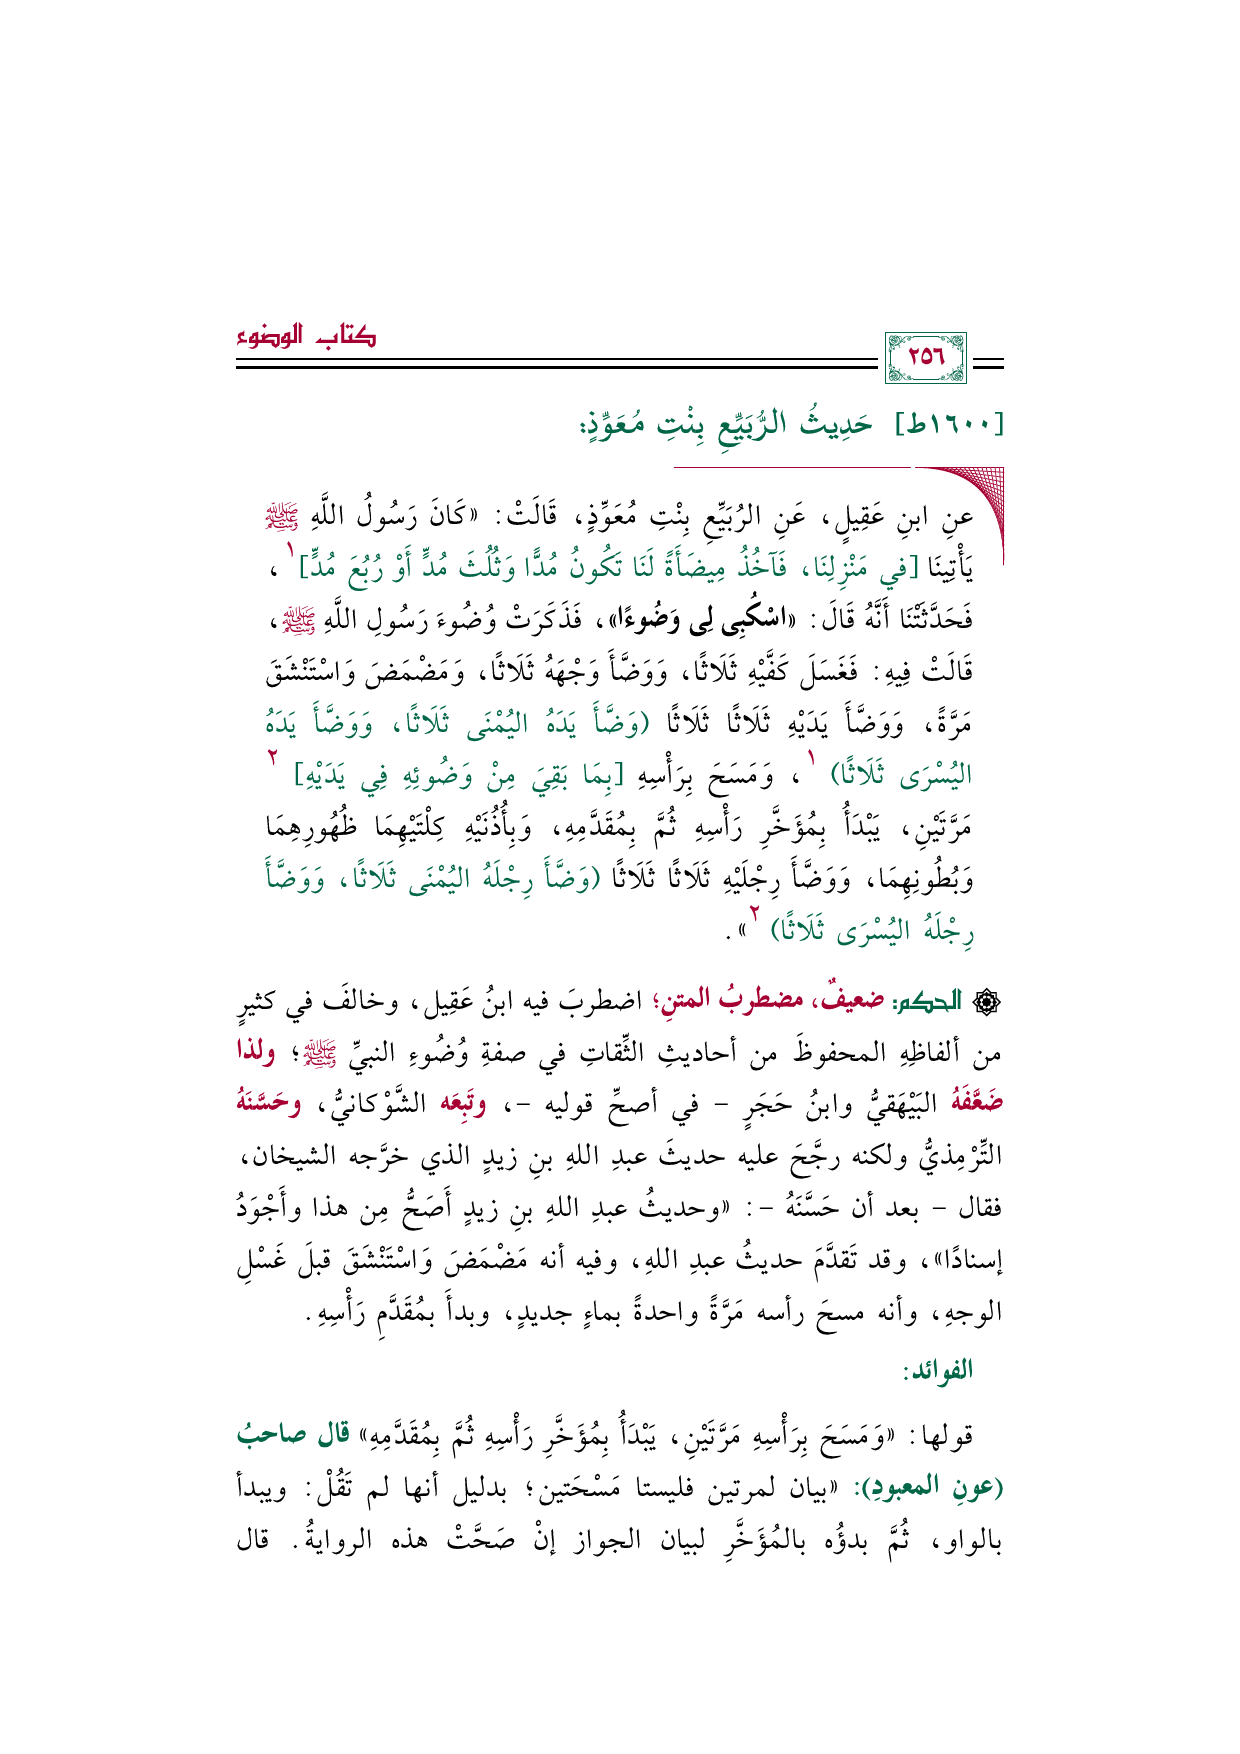 كتاب الوضوء
٢٥٦
[١٦٠٠ط] حَدِيثُ الرُّبَيِّعِ بِنْتِ مُعَوِّذٍ:
عنِ ابنِ عَقِيلٍ، عَنِ الرُبَيِّعِ بِنْتِ مُعَوِّذٍ، قَالَتْ: «كَانَ رَسُولُ اللَّهِ ﷺ
يَأْتِينَا [في مَنْزِلِنَا، فَآخُذُ مِيضَأَةً لَنَا تَكُونُ مُدًّا وَثُلُثَ مُدٍّ أَوْ رُبُعَ مُدٍّ]١،
فَحَدَّثَتْنَا أَنَّهُ قَالَ: «اسْكُبِي لِي وَضُوءًا»، فَذَكَرَتْ وُضُوءَ رَسُولِ اللَّهِ ﷺ،
قَالَتْ فِيهِ: فَغَسَلَ كَفَّيْهِ ثَلَاثًا، وَوَضَّأَ وَجْهَهُ ثَلَاثًا، وَمَضْمَضَ وَاسْتَنْشَقَ
مَرَّةً، وَوَضَّأَ يَدَيْهِ ثَلَاثًا ثَلَاثًا (وَضَّأَ يَدَهُ اليُمْنَى ثَلَاثًا، وَوَضَّأَ يَدَهُ
اليُسْرَى ثَلَاثًا)١، وَمَسَحَ بِرَأْسِهِ [بِمَا بَقِيَ مِنْ وَضُوئِهِ فِي يَدَيْهِ]٢
مَرَّتَيْنِ، يَبْدَأُ بِمُؤَخَّرِ رَأْسِهِ ثُمَّ بِمُقَدَّمِهِ، وَبِأُذُنَيْهِ كِلْتَيْهِمَا ظُهُورِهِمَا
وَبُطُونِهِمَا، وَوَضَّأَ رِجْلَيْهِ ثَلَاثًا ثَلَاثًا (وَضَّأَ رِجْلَهُ اليُمْنَى ثَلَاثًا، وَوَضَّأَ
رِجْلَهُ اليُسْرَى ثَلَاثًا)٢».
الحكم: ضعيفٌ، مضطربُ المتنِ؛ اضطربَ فيه ابنُ عَقِيل، وخالفَ في كثيرٍ
من ألفاظِهِ المحفوظَ من أحاديثِ الثِّقاتِ في صفةِ وُضُوءِ النبيِّ ﷺ؛ ولذا
ضَعَّفَهُ البَيْهَقيُّ وابنُ حَجَرٍ - في أصحِّ قوليه -، وتَبِعَه الشَّوْكانيُّ، وحَسَّنَهُ
التِّرْمِذيُّ ولكنه رجَّحَ عليه حديثَ عبدِ اللهِ بنِ زيدٍ الذي خرَّجه الشيخان،
فقال - بعد أن حَسَّنَهُ -: «وحديثُ عبدِ اللهِ بنِ زيدٍ أَصَحُّ مِن هذا وأَجْوَدُ
إسنادًا»، وقد تَقدَّمَ حديثُ عبدِ اللهِ، وفيه أنه مَضْمَضَ وَاسْتَنْشَقَ قبلَ غَسْلِ
الوجهِ، وأنه مسحَ رأسه مَرَّةً واحدةً بماءٍ جديدٍ، وبدأَ بمُقَدَّمِ رَأْسِهِ.
الفوائد:
قولها: «وَمَسَحَ بِرَأْسِهِ مَرَّتَيْنِ، يَبْدَأُ بِمُؤَخَّرِ رَأْسِهِ ثُمَّ بِمُقَدَّمِهِ» قال صاحبُ
(عونِ المعبودِ): «بيان لمرتين فليستا مَسْحَتين؛ بدليل أنها لم تَقُلْ: ويبدأ
بالواو، ثُمَّ بدؤُه بالمُؤَخَّرِ لبيان الجواز إنْ صَحَّتْ هذه الروايةُ. قال